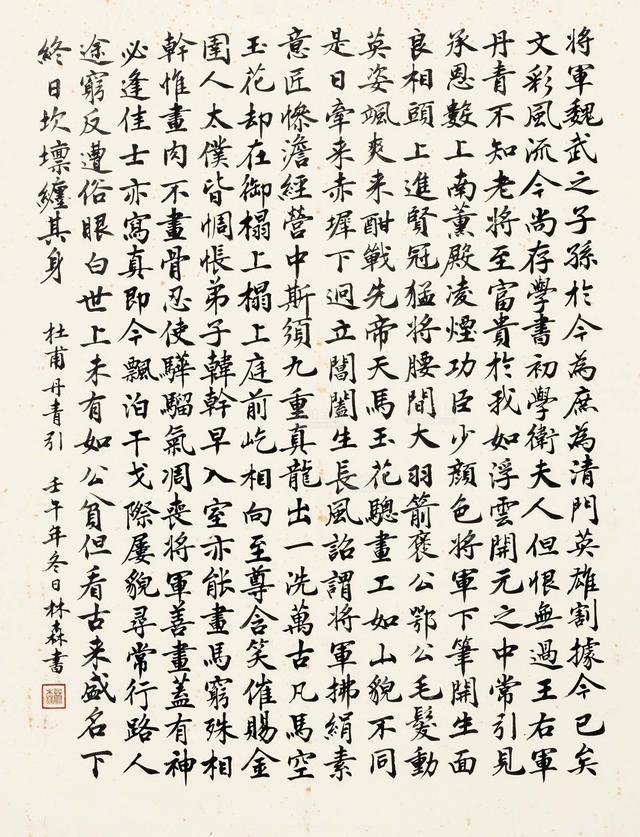 將軍魏武之子孫於今為庶為清門英雄割據今已矣
文彩風流今尚存學書初學衛夫人但恨無過王右軍
丹青不知老將至富貴於我如浮雲開元之中常引見
承恩數上南薰殿凌煙功臣少顏色將軍下筆開生面
良相頭上進賢冠猛將腰間大羽箭褒公鄂公毛髮動
英姿颯爽來酣戰先帝天馬玉花驄畫工如山貌不同
是日牽來赤墀下迥立閶闔生長風詔謂將軍拂絹素
意匠慘澹經營中斯須九重真龍出一洗萬古凡馬空
玉花却在御榻上榻上庭前屹相向至尊含笑催賜金
圉人太僕皆惆悵弟子韓幹早入室亦能畫馬窮殊相
幹惟畫肉不畫骨忍使驊騮氣凋喪將軍善畫蓋有神
必逢佳士亦寫真即今飄泊干戈際屢貌尋常行路人
途窮反遭俗眼白世上未有如公貧但看古來盛名下
終日坎壈纏其身 杜甫丹青引 壬午年冬日林森書